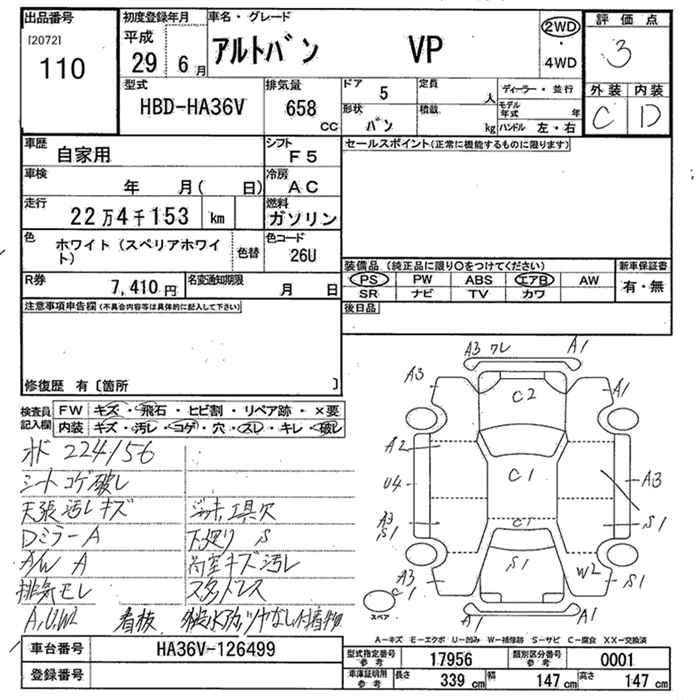 出品番号
[2072]
110
初度登録年月
平成
29 6 月
車名・グレード
アルトバン VP
2WD
・
4WD
評価点
3
外装 内装
C D
型式
HBD-HA36V
排気量
658
cc
ドア 5
形状 バン
定員 人
積載 kg
ディーラー・並行
モデル年式 年
ハンドル 左・右
車歴
自家用
シフト
F5
車検
年 月( 日)
冷房
AC
走行
22万4千153 km
燃料
ガソリン
色
ホワイト(スペリアホワイト)
色替
色コード
26U
R券
7,410 円
名変通知期限
月 日
セールスポイント(正常に機能するものに限ります)
装備品(純正品に限り○をつけてください)
PS PW ABS エアB AW
SR ナビ TV カワ
新車保証書
有・無
後日品
注意事項申告欄(不具合内容等は具体的に記入して下さい)
修復歴 有〔箇所 〕
検査員記入欄
FW キズ・飛石・ヒビ割・リペア跡・×要
内装 キズ・汚レ・コゲ・穴・スレ・キレ・破レ
224156
シートコゲ破レ
天張汚レキズ
DミラーA
A/W A
排気モレ
A,U,W2
ジャッキ工具欠
下廻りS
荷室キズ汚レ
スタットレス
看板
A3 ワレ A1
A3 A1
C2
A2
U4
C1
A3
A3
S1
C1
S1
S1
W2
A3
C1
S1
A1
A1
スペア
A－キズ E－エクボ U－凹み W－補修跡 S－サビ C－腐食 XX－交換済
車台番号
HA36V-126499
登録番号
型式指定番号
参考
17956
類別区分番号
参考
0001
車庫証明用
参考
長さ 339 cm 幅 147 cm 高さ 147 cm